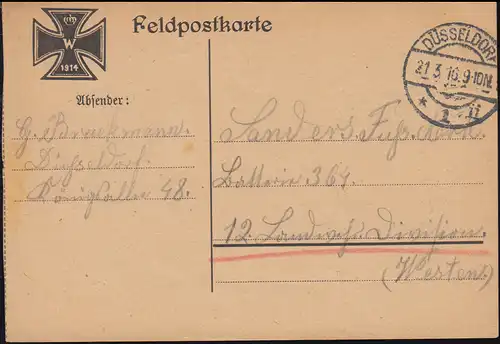 W
1914
Feldpostkarte
Absender:
G. Bruckmann.
Düsseldorf.
Königsallee 48.
DÜSSELDORF
21.3.16.9-10N.
* 1 ii
Sanders
Batterie 364.
12 Landw. Division.
(Westen)